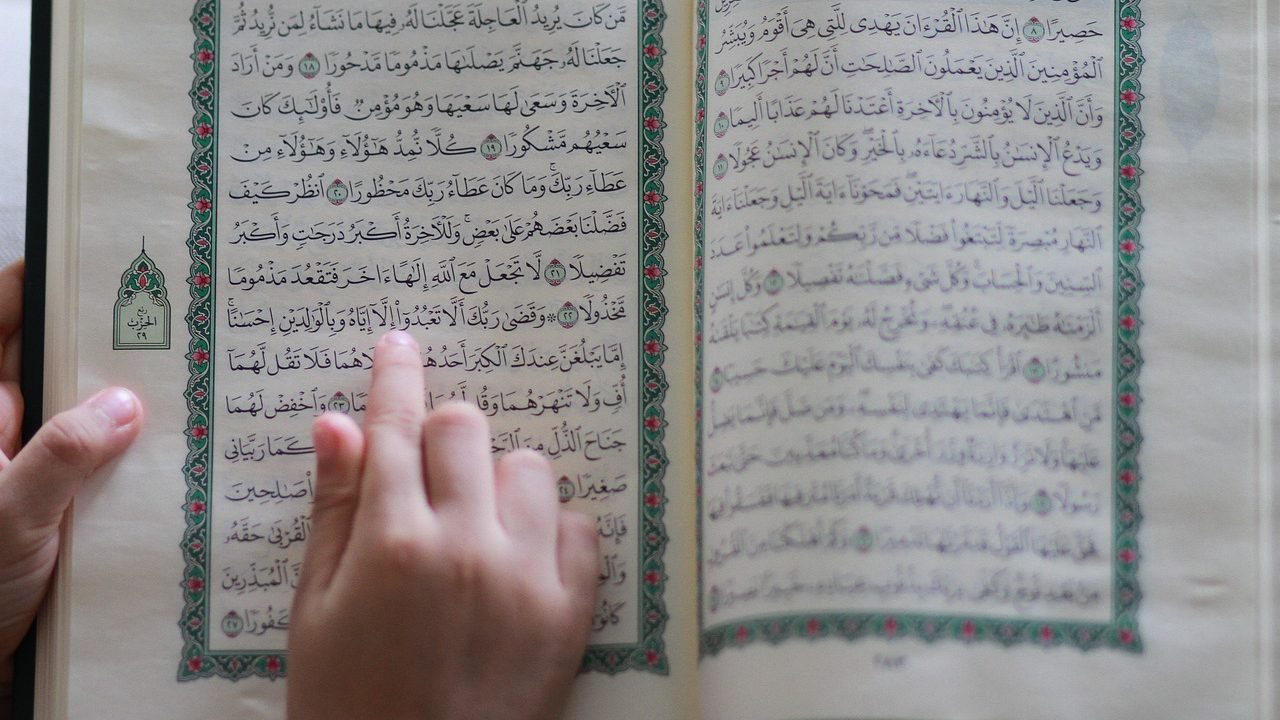 حَصِيرًا ٨ إِنَّ هَٰذَا ٱلْقُرْءَانَ يَهْدِى لِلَّتِى هِىَ أَقْوَمُ وَيُبَشِّرُ
ٱلْمُؤْمِنِينَ ٱلَّذِينَ يَعْمَلُونَ ٱلصَّٰلِحَٰتِ أَنَّ لَهُمْ أَجْرًا كَبِيرًا ٩
وَأَنَّ ٱلَّذِينَ لَا يُؤْمِنُونَ بِٱلْءَاخِرَةِ أَعْتَدْنَا لَهُمْ عَذَابًا أَلِيمًا ١٠
وَيَدْعُ ٱلْإِنسَٰنُ بِٱلشَّرِّ دُعَآءَهُۥ بِٱلْخَيْرِۖ وَكَانَ ٱلْإِنسَٰنُ عَجُولًا ١١
وَجَعَلْنَا ٱلَّيْلَ وَٱلنَّهَارَ ءَايَتَيْنِۖ فَمَحَوْنَآ ءَايَةَ ٱلَّيْلِ وَجَعَلْنَآ ءَايَةَ
ٱلنَّهَارِ مُبْصِرَةً لِّتَبْتَغُوا۟ فَضْلًا مِّن رَّبِّكُمْ وَلِتَعْلَمُوا۟ عَدَدَ
ٱلسِّنِينَ وَٱلْحِسَابَۚ وَكُلَّ شَىْءٍ فَصَّلْنَٰهُ تَفْصِيلًا ١٢ وَكُلَّ إِنسَٰنٍ
أَلْزَمْنَٰهُ طَٰٓئِرَهُۥ فِى عُنُقِهِۦۖ وَنُخْرِجُ لَهُۥ يَوْمَ ٱلْقِيَٰمَةِ كِتَٰبًا يَلْقَىٰهُ
مَنشُورًا ١٣ ٱقْرَأْ كِتَٰبَكَ كَفَىٰ بِنَفْسِكَ ٱلْيَوْمَ عَلَيْكَ حَسِيبًا ١٤
مَّنِ ٱهْتَدَىٰ فَإِنَّمَا يَهْتَدِى لِنَفْسِهِۦۖ وَمَن ضَلَّ فَإِنَّمَا يَضِلُّ
عَلَيْهَاۚ وَلَا تَزِرُ وَازِرَةٌ وِزْرَ أُخْرَىٰۗ وَمَا كُنَّا مُعَذِّبِينَ حَتَّىٰ نَبْعَثَ
رَسُولًا ١٥ وَإِذَآ أَرَدْنَآ أَن نُّهْلِكَ قَرْيَةً أَمَرْنَا مُتْرَفِيهَا فَفَسَقُوا۟ فِيهَا
مَّن كَانَ يُرِيدُ ٱلْعَاجِلَةَ عَجَّلْنَا لَهُۥ فِيهَا مَا نَشَآءُ لِمَن نُّرِيدُ ثُمَّ
جَعَلْنَا لَهُۥ جَهَنَّمَ يَصْلَىٰهَا مَذْمُومًا مَّدْحُورًا ١٨ وَمَنْ أَرَادَ
ٱلْءَاخِرَةَ وَسَعَىٰ لَهَا سَعْيَهَا وَهُوَ مُؤْمِنٌ فَأُو۟لَٰٓئِكَ كَانَ
سَعْيُهُم مَّشْكُورًا ١٩ كُلًّا نُّمِدُّ هَٰٓؤُلَآءِ وَهَٰٓؤُلَآءِ مِنْ
عَطَآءِ رَبِّكَۚ وَمَا كَانَ عَطَآءُ رَبِّكَ مَحْظُورًا ٢٠ ٱنظُرْ كَيْفَ
فَضَّلْنَا بَعْضَهُمْ عَلَىٰ بَعْضٍۚ وَلَلْءَاخِرَةُ أَكْبَرُ دَرَجَٰتٍ وَأَكْبَرُ
تَفْضِيلًا ٢١ لَّا تَجْعَلْ مَعَ ٱللَّهِ إِلَٰهًا ءَاخَرَ فَتَقْعُدَ مَذْمُومًا
مَّخْذُولًا ٢٢ ۞ وَقَضَىٰ رَبُّكَ أَلَّا تَعْبُدُوٓا۟ إِلَّآ إِيَّاهُ وَبِٱلْوَٰلِدَيْنِ إِحْسَٰنًاۚ
إِمَّا يَبْلُغَنَّ عِندَكَ ٱلْكِبَرَ أَحَدُهُمَآ فَلَا تَقُل لَّهُمَآ
أُفٍّ وَلَا تَنْهَرْهُمَا وَقُل لَّهُمَا ٢٣ وَٱخْفِضْ لَهُمَا
جَنَاحَ ٱلذُّلِّ مِنَ كَمَا رَبَّيَانِى
صَغِيرًا ٢٤ صَٰلِحِينَ
فَإِنَّهُۥ ٱلْقُرْبَىٰ حَقَّهُۥ
ٱلْمُبَذِّرِينَ
كَفُورًا ٢٧
ربع
الحزب
٢٩